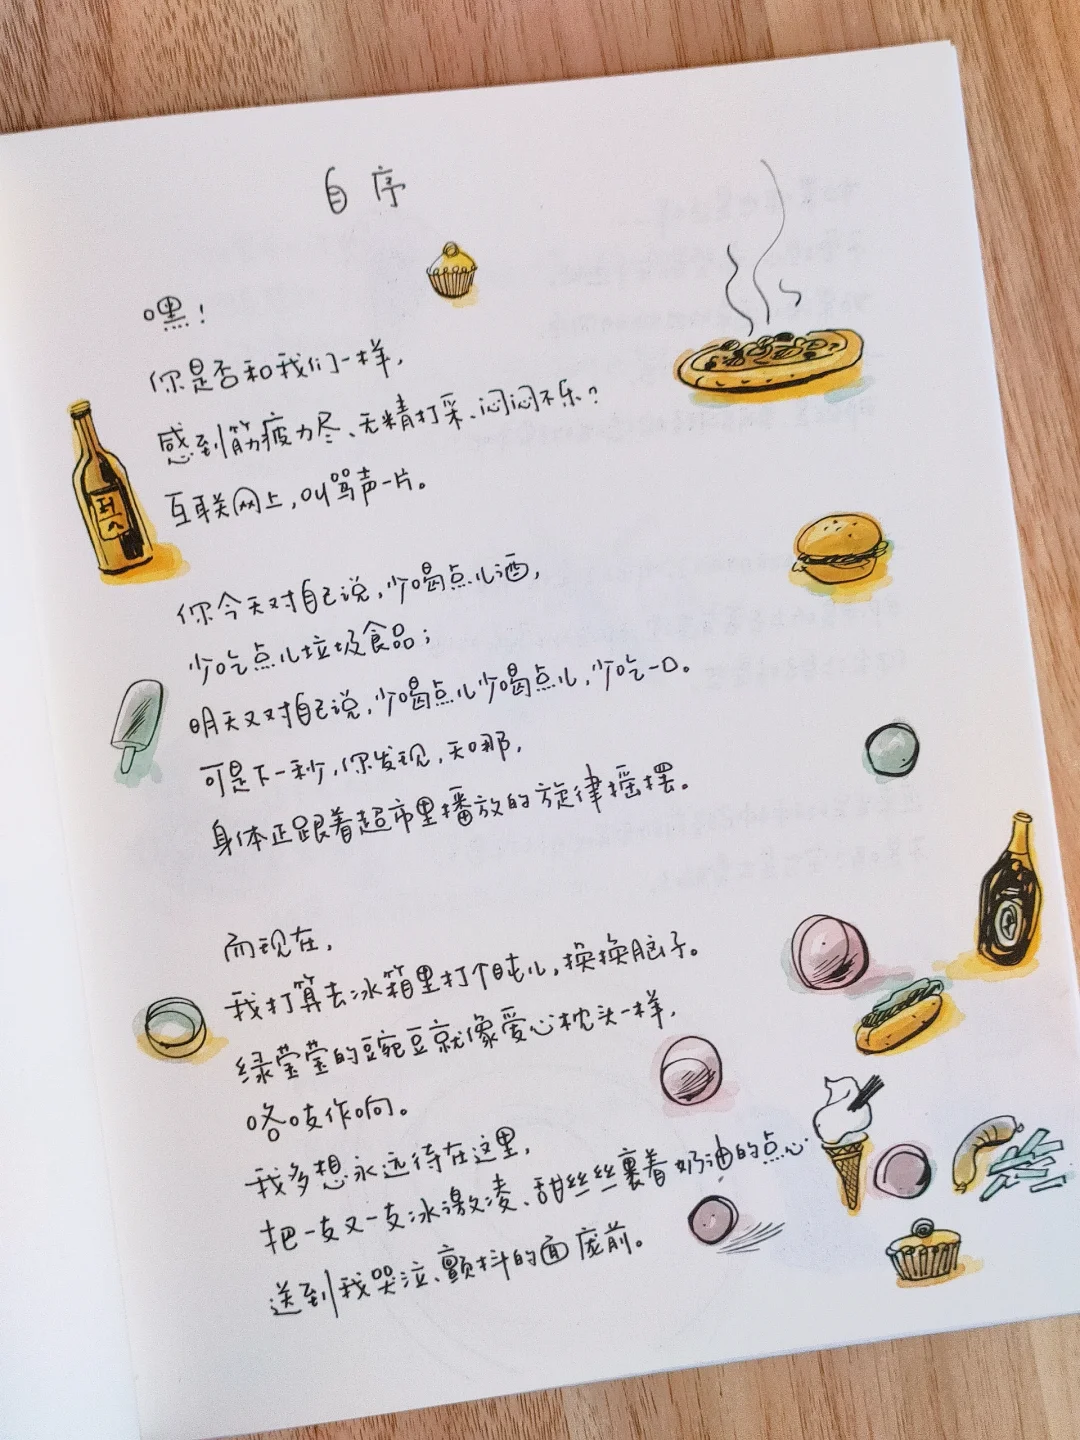 自序
嘿！
你是否和我们一样，
感到筋疲力尽、无精打采、闷闷不乐？
互联网上，叫骂声一片。
你今天对自己说，少喝点儿酒，
少吃点儿垃圾食品；
明天又对自己说，少喝点儿少喝点儿，少吃一口。
可是下一秒，你发现，天哪，
身体正跟着超市里播放的旋律摇摆。
而现在，
我打算去冰箱里打个盹儿，换换脑子。
绿莹莹的豌豆就像爱心枕头一样，
咯吱作响。
我多想永远待在这里，
把一支又一支冰激凌、甜丝丝裹着奶油的点心
送到我哭泣、颤抖的面庞前。